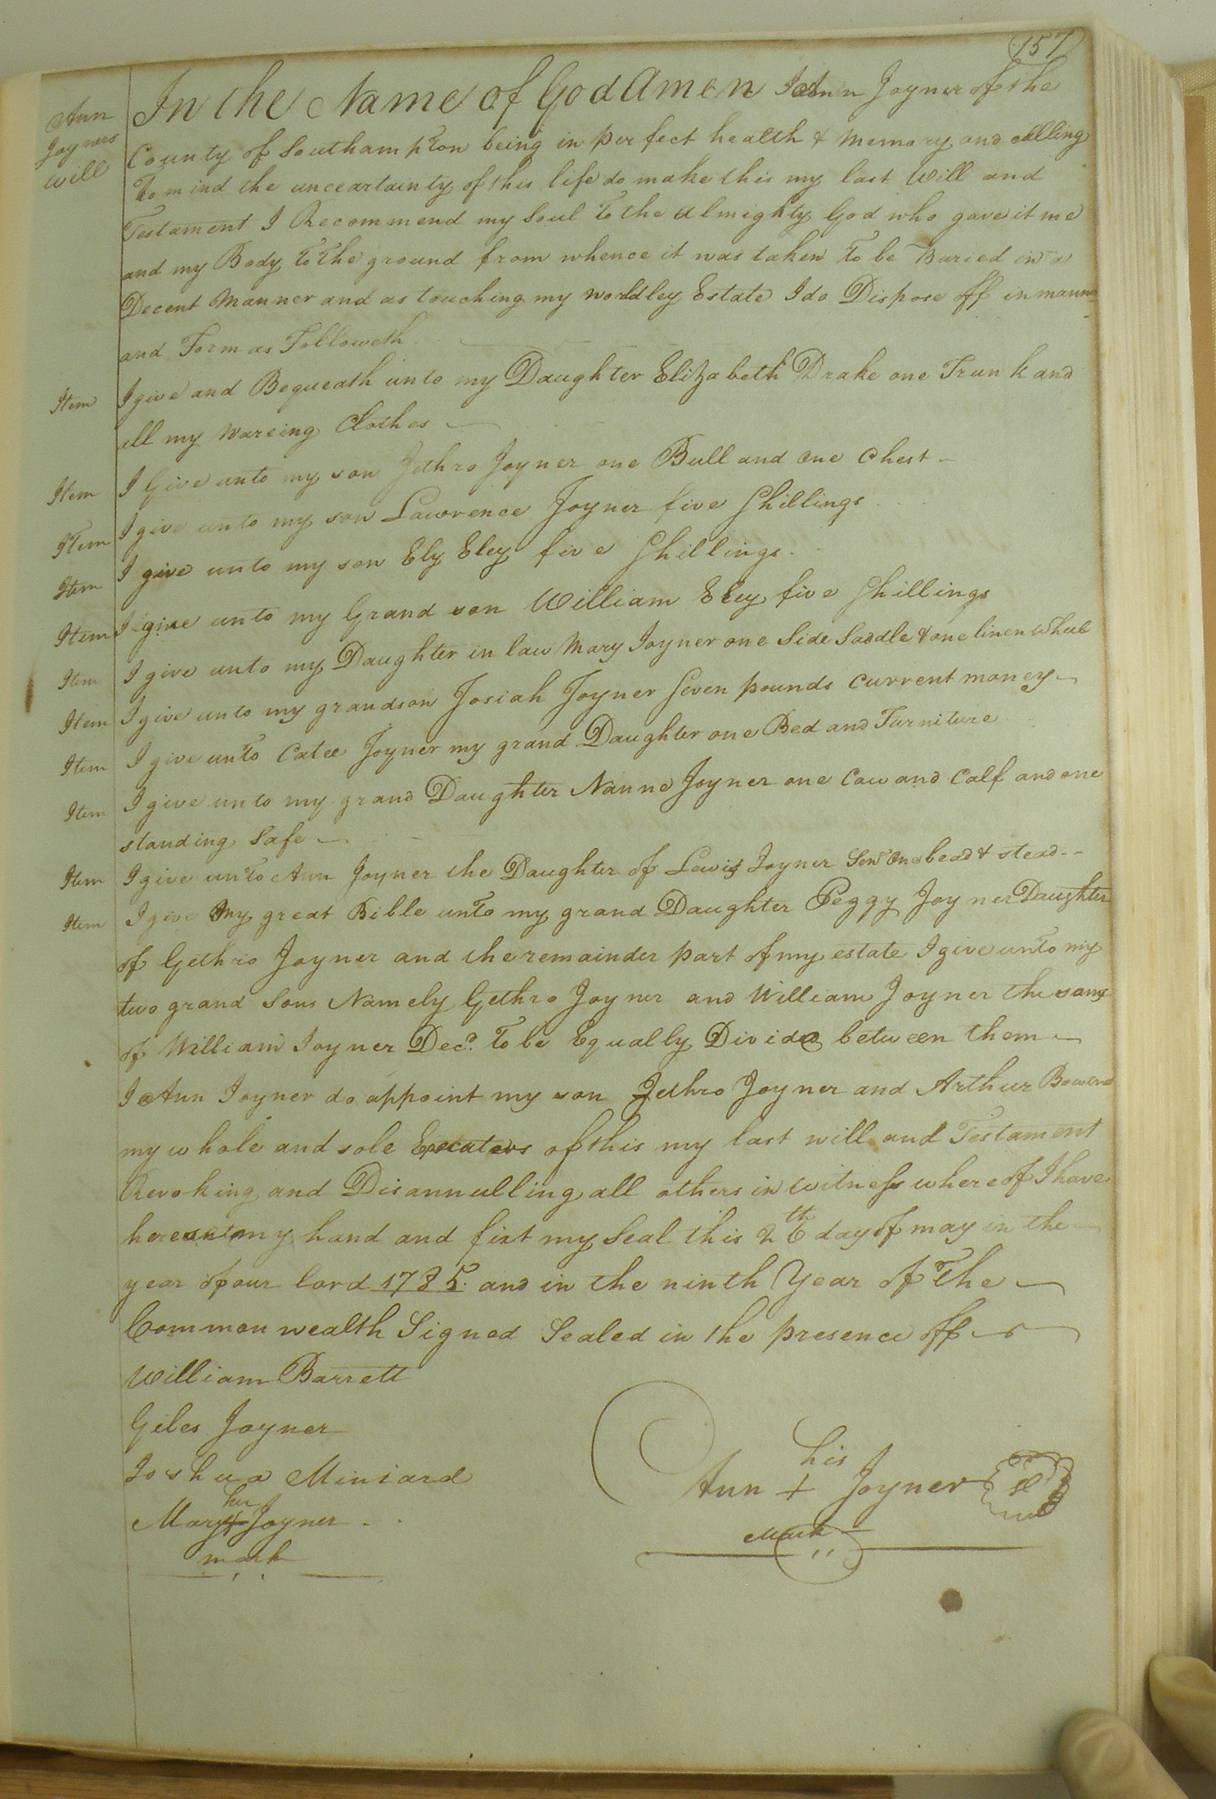 157
Ann
Joyners
Will
In the Name of God Amen I Ann Joyner of the
County of Southampton being in perfect health & memory and calling
To mind the uncertainty of this life do make this my last Will and
Testament I Recommend my Soul To the almighty God who gave it me
and my Body To the ground from whence it was taken To be Buried in a
Decent Manner and as touching my worldley Estate I do Dispose off in manner
and Form as Followeth
Item I give and Bequeath unto my Daughter Elizabeth Drake one Trunk and
all my wareing Clothes
Item I Give unto my son Jethro Joyner one Bull and one Chest
Item I give unto my son Lawrence Joyner five Shillings
Item I give unto my son Ely Eley five Shillings
Item I give unto my Grand son William Eley five Shillings
Item I give unto my Daughter in law Mary Joyner one Side Saddle & one linen wheel
Item I give unto my grandson Josiah Joyner Seven pounds Current money
Item I give unto Catee Joyner my grand Daughter one Bed and Furniture
Item I give unto my grand Daughter Nanne Joyner one Cow and Calf and one
standing Safe
Item I give unto Ann Joyner the Daughter of Lewis Joyner Senr one bead & stead
Item I give my great Bible unto my grand Daughter Peggy Joyner Daughter
of Gethro Joyner and the remainder part of my estate I give unto my
two grand Sons Namely Gethro Joyner and William Joyner the sons
of William Joyner Decd. To be Equally Divided between them
I Ann Joyner do appoint my son Jethro Joyner and Arthur Bowen
my whole and sole Executers of this my last will and Testament
Revoking and Disannulling all others in witness whereof I have
hereunto my hand and fixt my Seal this 26th day of may in the
year of our lord 1785. and in the ninth Year of The
Common wealth Signed Sealed in the presence off
William Barrett
Giles Joyner
Joshua Miniard
her
Mary + Joyner
mark
his
Ann + Joyner
Mark